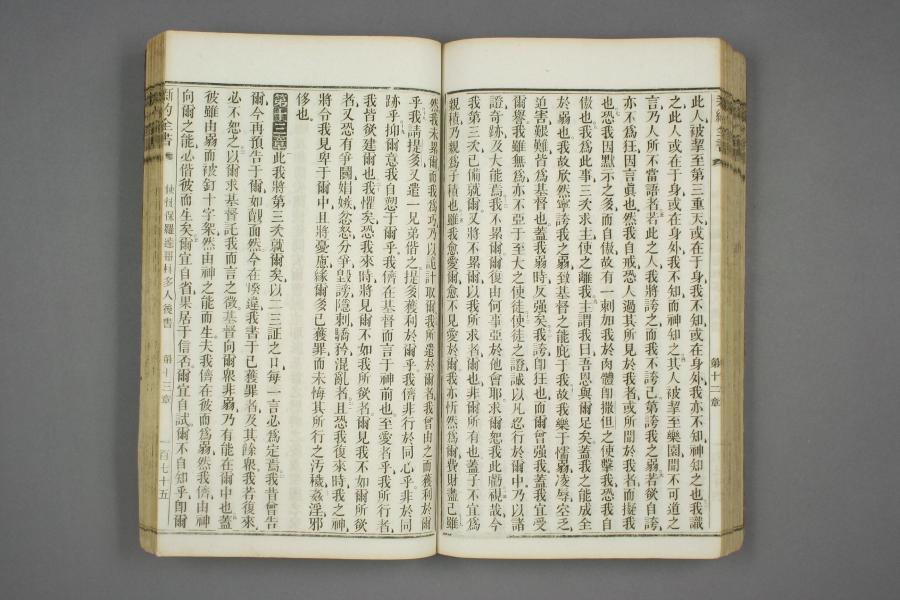 此人被挈至第三重天或在于身我不知或在身外我亦不知神知之也我識
之此人或在于身或在身外我不知而神知之其人被挈至樂園聞不可道之
言乃人所不當語者若此之人我將誇之而我不誇己第誇我之弱若欲自誇
亦不爲狂因言眞也然我自戒恐人過其所見於我者或所聞於我者而擬我
也恐我因默示之多而自傲故有一刺加我於肉體卽撒但之使擊我恐我自
傲也我爲此事三次求主使之離我主謂我曰吾恩與爾足矣蓋我之能成全
於弱也我故欣然寧誇我之弱致基督之能庇于我故我樂于懦弱凌辱空乏
迫害艱難皆爲基督也蓋我弱時反强矣我誇卽狂也而爾曾强我蓋我宜受
爾譽我雖無爲亦不亞于至大之使徒使徒之證誠以凡忍行於爾中乃以諸
證奇跡及大能焉我不累爾爾復由何事亞於他會耶求爾恕我此虧視哉今
我第三次已備就爾又將不累爾以我所求者爾也非爾所有也蓋子不宜爲
親積乃親爲子積也雖我愈愛爾愈不見愛於爾我亦忻然爲爾費財盡己雖
然我未累爾而我爲巧乃以詭計取爾我所遣於爾者我曾由之而獲利於爾
乎我請提多又遣一見弟偕之提多獲利於爾乎我儕非行於同心乎非於同
跡乎抑爾意我自愬于爾乎我儕在基督而言于神前也至愛者乎我所行者
我皆欲建爾也我懼矣恐我來時將見爾不如我所欲者爾見我不如爾所欲
者又恐有爭鬭娼嫉忿怒分爭毀謗隱刺驕矜混亂者且恐我復來時我之神
將令我見卑于爾中且將憂慮緣爾多已獲罪而未悔其所行之汚穢姦淫邪
侈也
第十三章此我將第三次就爾矣以二三証之口每一言必爲定焉我昔曾告
爾今再預告于爾如覿面然今在暌違我書于已獲罪者及其餘衆我若復來
必不恕之以爾求基督託我而言之徵基督向爾衆非弱乃有能在爾中也蓋
彼雖由弱而被釘十字架然由神之能而生夫我儕在彼而爲弱然我儕由神
向爾之能必偕彼而生矣爾宜自省果居于信否爾宜自試爾不自知乎卽爾
新約全書
使徒保羅達哥林多人後書
第十三章
一百七十五
新約全書
第十二章